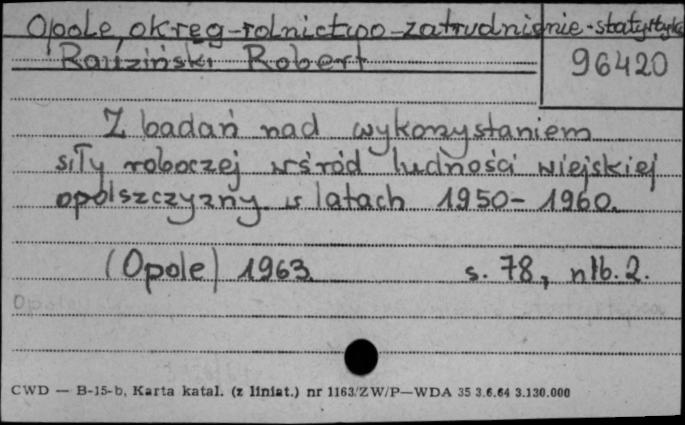 Opole, okręg-rolnictwo-zatrudnienie-statystyka
Rauziński Robert
96420
Z badań nad wykorzystaniem
siły roboczej wśród ludności wiejskiej
opolszczyzny w latach 1950-1960.
(Opole) 1963. s. 78, nlb. 2.
CWD — B-15-b, Karta katal. (z liniat.) nr 1163/ZW/P—WDA 35 3.6.64 3.130.000